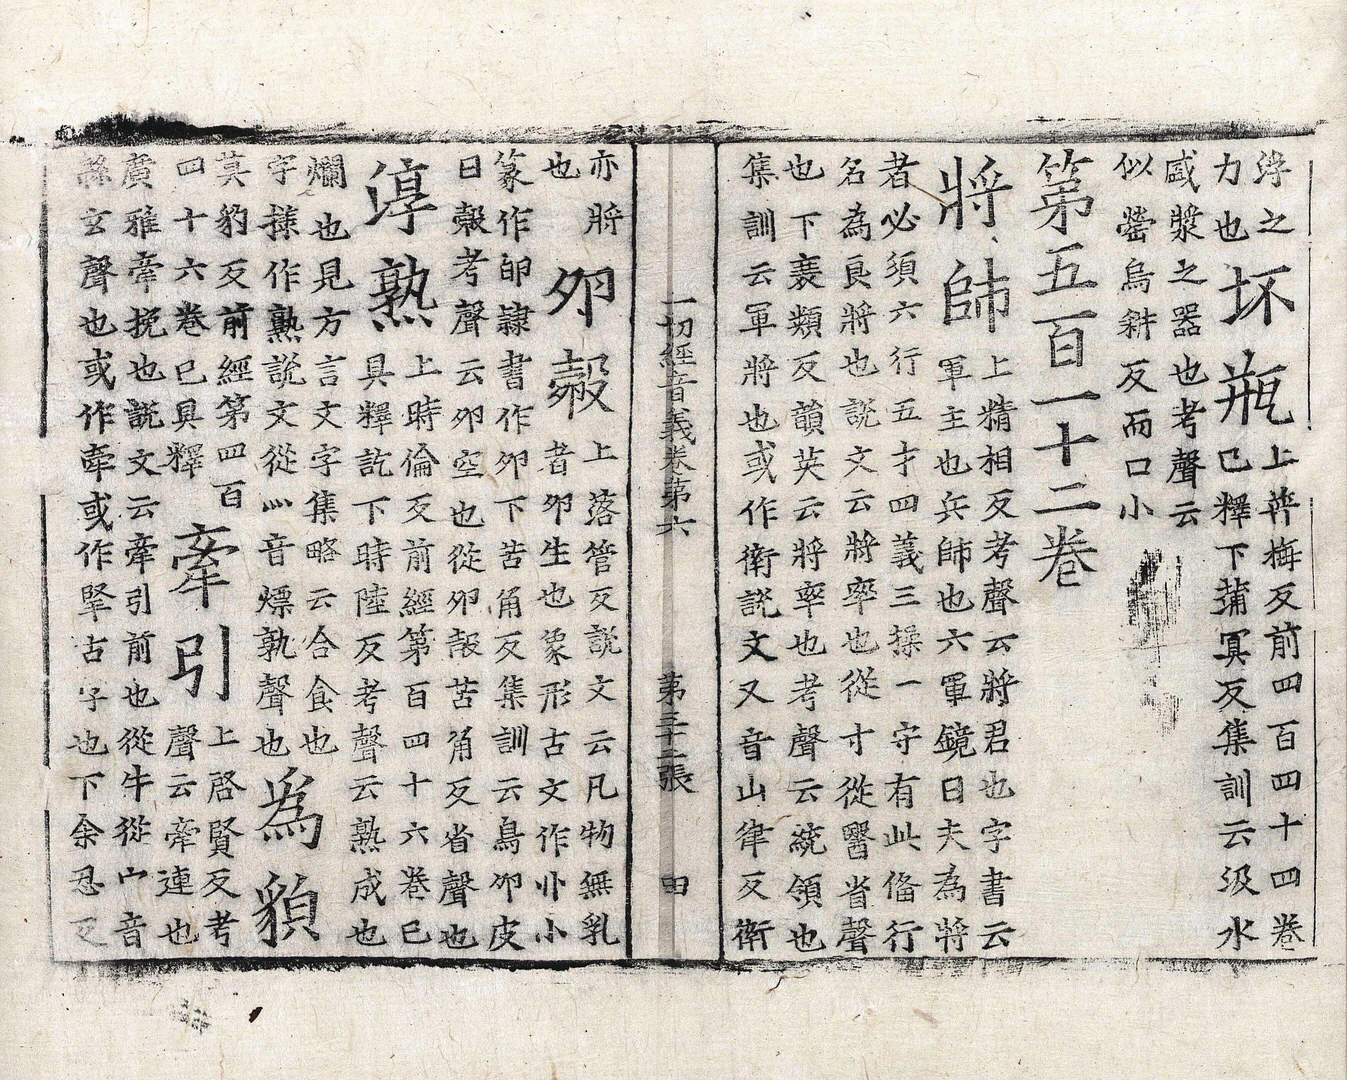 浮之
力也
坏瓶
上普梅反前四百四十四卷
已釋下蒲冥反集訓云汲水
盛漿之器也考聲云
似罃烏耕反而口小
第五百一十二卷
將帥
上精相反考聲云將君也字書云
軍主也兵師也六軍鏡曰夫為將
者必須六行五才四義三操一守有此偹行
名為良將也說文云將率也從寸從醬省聲
也下衰類反韻英云將率也考聲云統領也
集訓云軍將也或作衛說文又音山律反衛
一切經音義卷第六 第三十二張 田
亦將
也
卵㲉
上落管反說文云凡物無乳
者卵生也象形古文作卝小
篆作卵隸書作卵下苦角反集訓云鳥卵皮
曰㲉考聲云卵空也從卵㱿苦角反省聲也
淳熟
上時倫反前經第百四十六卷已
具釋訖下時陸反考聲云熟成也
爛也見方言文字集略云合食也
字㨾作熟說文從灬音熛孰聲也
為貌
莫豹反前經第四百
四十六卷已具釋
牽引
上啓賢反考
聲云牽連也
廣雅牽挽也說文云牽引前也從牛從冖音
絲玄聲也或作牵或作掔古字也下余忍反